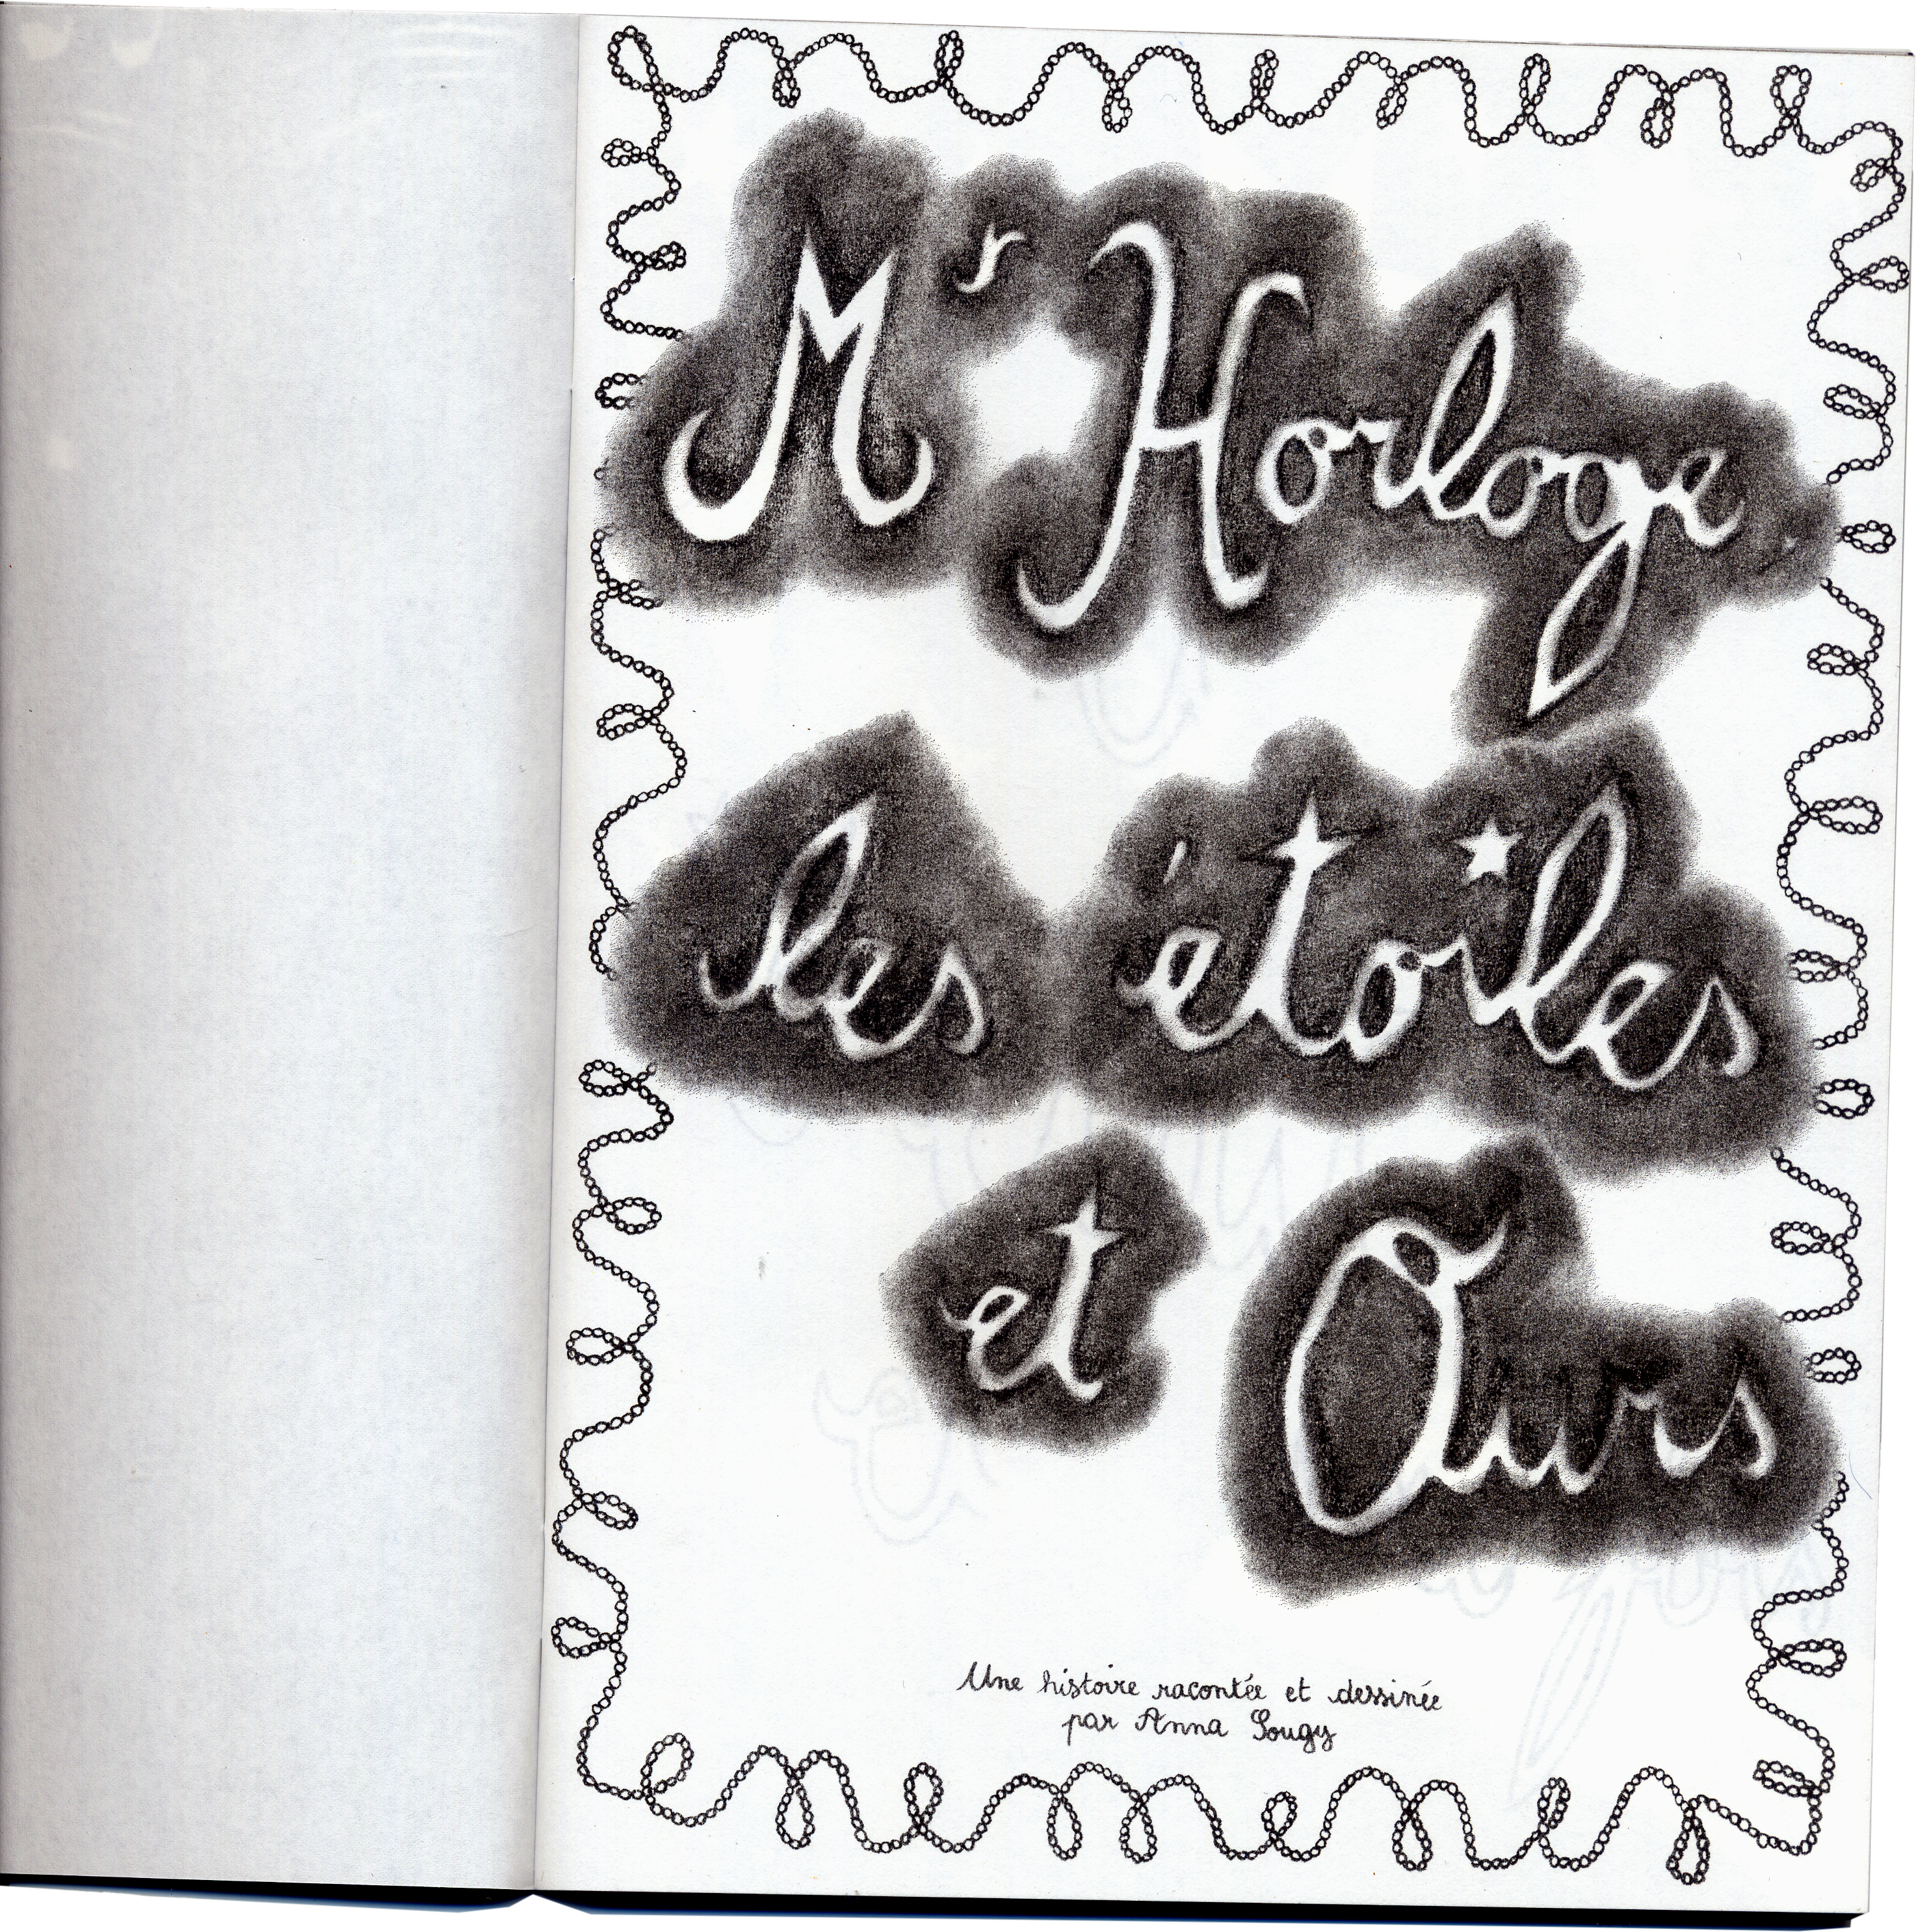 Mr Horloge
les étoiles
et Ours
Une histoire racontée et dessinée
par Anna Sougy